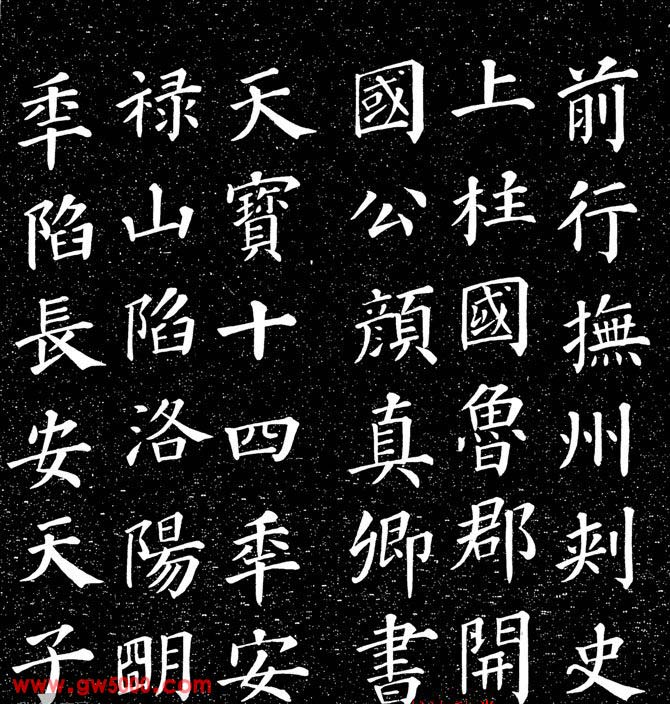 前行撫州刺史
上柱國魯郡開
國公顏真卿書
天寶十四年安
祿山陷洛陽明
年陷長安天子
www.gw5000.com